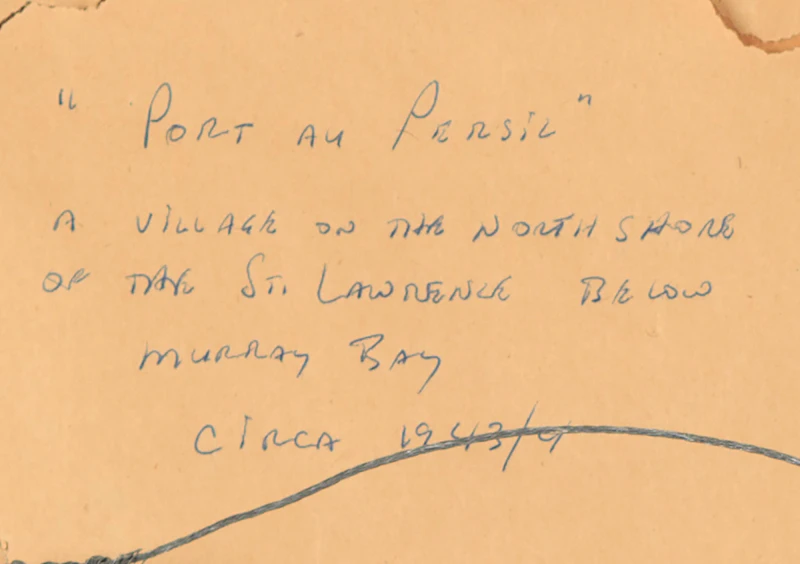 "Port au Persil"
A village on the north shore
of the St. Lawrence below
Murray Bay
circa 1943/4